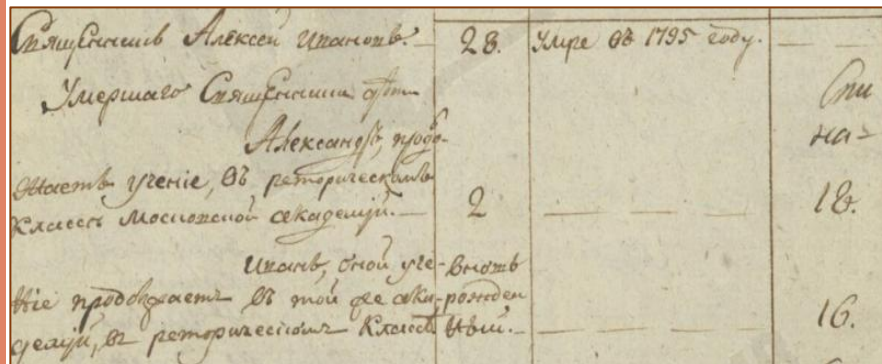 Священникъ Алексей Ивановъ. 28. Умре въ 1795 году.
Умершаго Священника дети
Александръ, продол-
жаетъ учение, въ реторическомъ
классе Московской академии. 2 18.
Иванъ, оной уче- Вновь
ние продолжаетъ въ той же ака- рожден
демии, въ реторическомъ классе ный. 16.